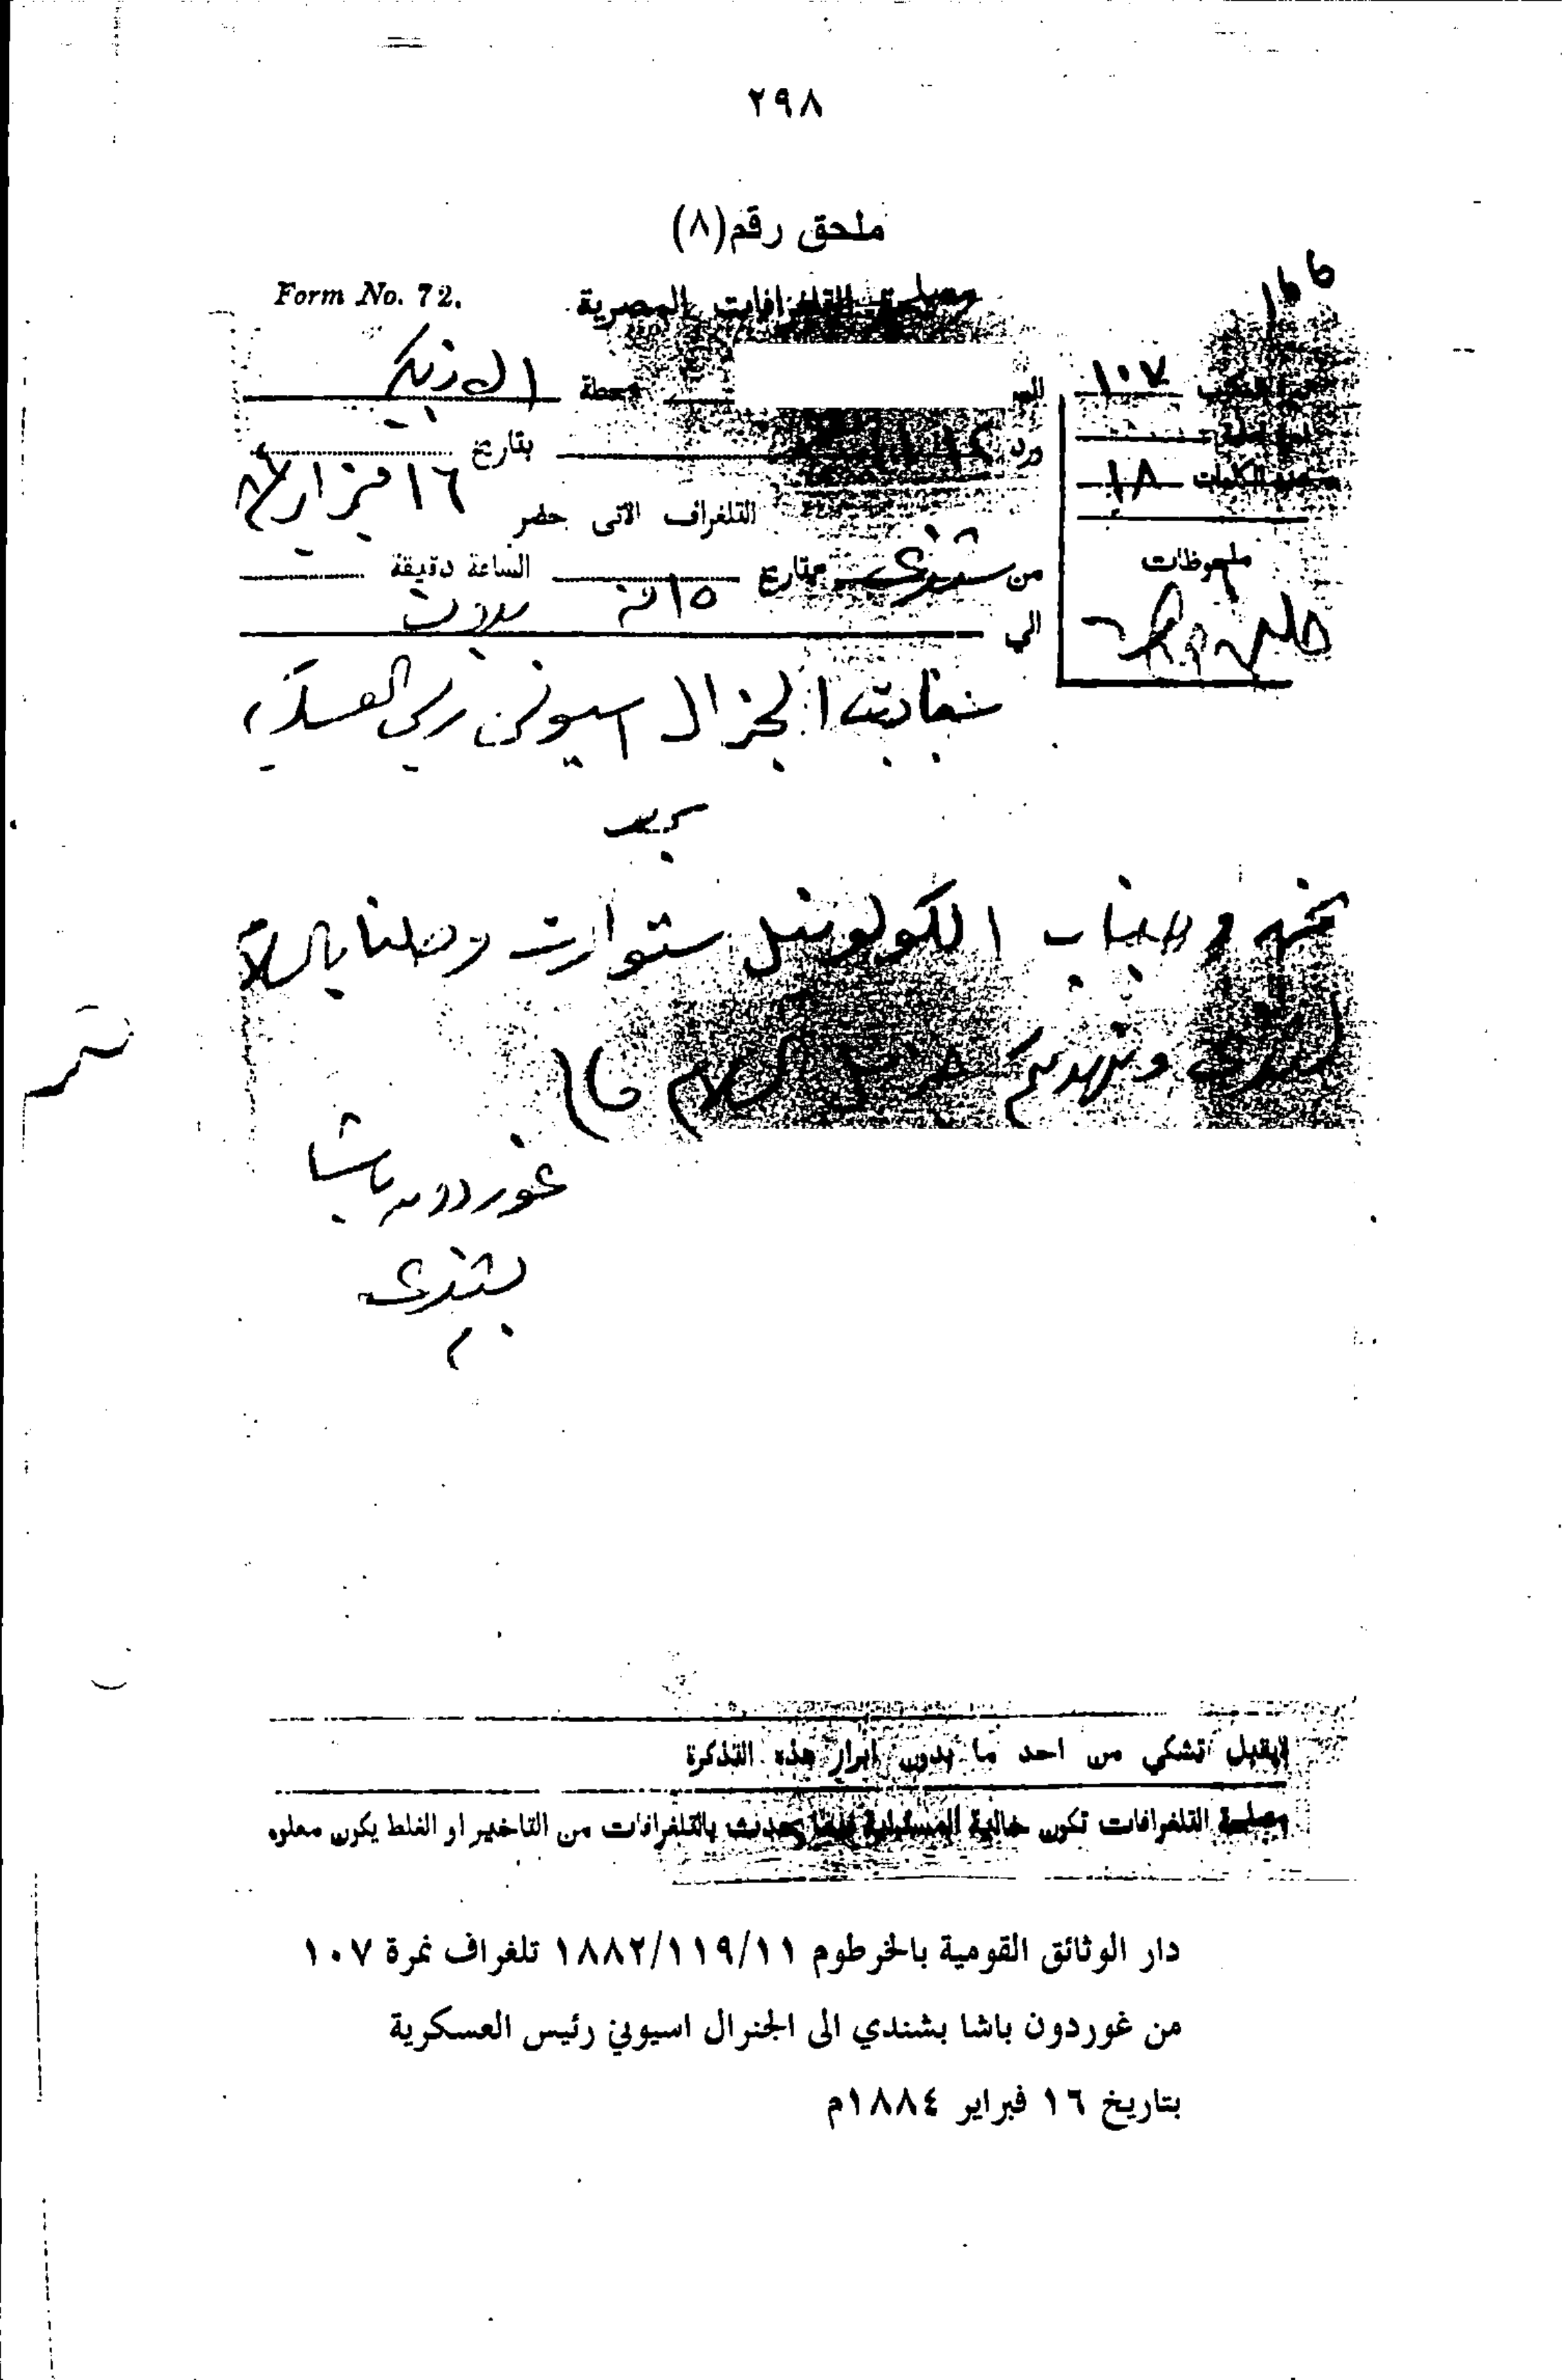 ٢٩٨
ملحق رقم(٨)
Form No. 72.
مصلحة التلغرافات المصرية
١٠٧
محطة الازبكية
ورد
بتاريخ ١٦ فبراير
عدد الكلمات ١٨
التلغراف الاتى حضر
ملحوظات
من شندى بتاريخ ١٥ منه الساعة دقيقة
الي
سعادتلو الجنرال اسيونى رئيس العسكرية
نحن وجناب الكولونيل ستوارت وصلنا بالسلامة
لشندى ونهديكم السلام
غوردون باشا
بشندى
لايقبل تشكي من احد ما بدون ابراز هذه التذكرة
مصلحة التلغرافات تكون خالية المسئولية فيما يحدث بالتلغرافات من التاخير او الغلط يكون معلوم
دار الوثائق القومية بالخرطوم ١٨٨٢/١١٩/١١ تلغراف نمرة ١٠٧
من غوردون باشا بشندي الى الجنرال اسيوني رئيس العسكرية
بتاريخ ١٦ فبراير ١٨٨٤م